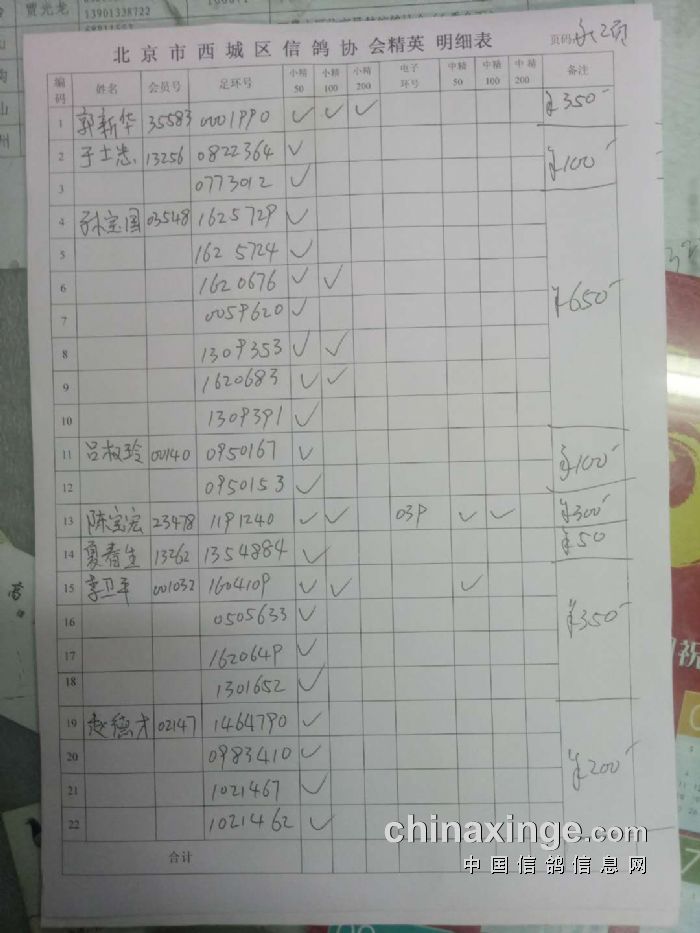 贾光龙
13901338722
北京市西城区信鸽协会精英 明细表
页码 共2页
编码 姓名 会员号 足环号 小精50 小精100 小精200 电子环号 中精50 中精100 中精200 备注
1 郭新华 35583 0001990 ✓ ✓ ✓ ¥350-
2 于士忠 13256 0822364 ✓ ¥100-
3 0773012 ✓
4 孙宝国 03548 1625729 ✓ ¥650-
5 1625724 ✓
6 1620676 ✓ ✓
7 0059620 ✓
8 1309353 ✓ ✓
9 1620683 ✓ ✓
10 1309391 ✓
11 吕淑玲 00140 0950167 ✓ ¥100-
12 0950153 ✓
13 陈宝宏 23478 1191240 ✓ ✓ 039 ✓ ✓ ¥300-
14 夏春生 13262 1354884 ✓ ¥50
15 李卫平 001032 1604109 ✓ ✓ ✓ ¥350-
16 0505633 ✓
17 1620649 ✓
18 1301652 ✓
19 赵德才 02147 1464790 ✓ ¥200-
20 0983410 ✓
21 1021467 ✓
22 1021462 ✓
合计
祝
chinaxinge.com
中国信鸽信息网